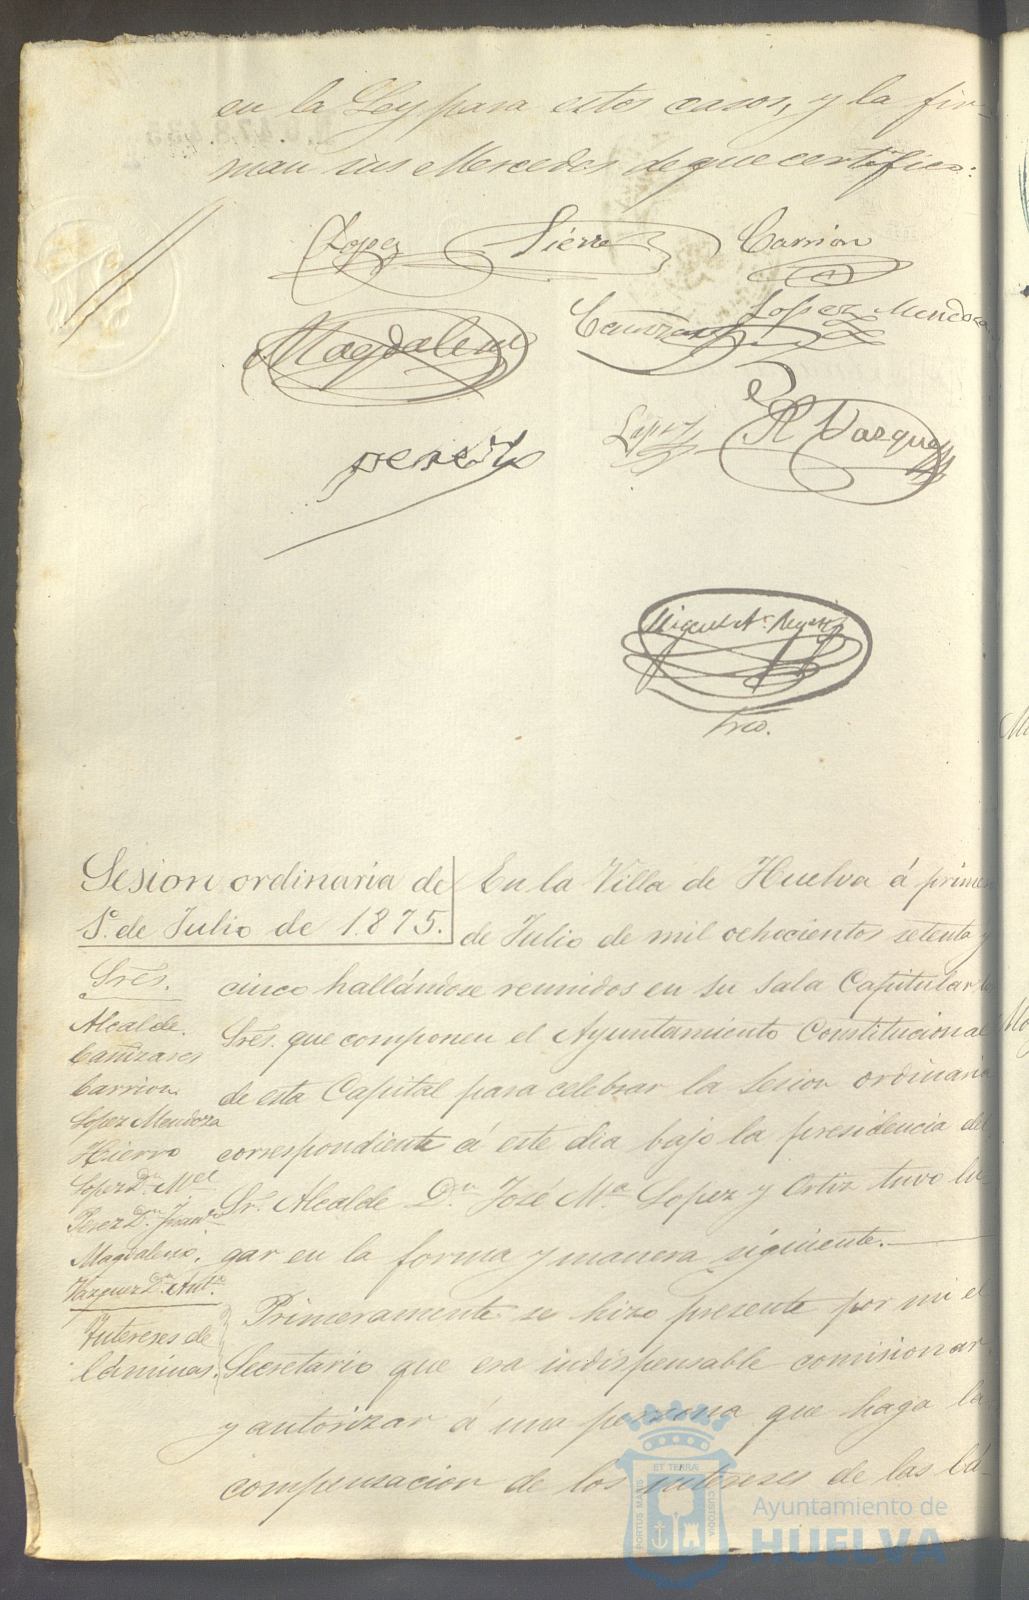 en la Ley para estos casos, y la fir-
man sus Mercedes de que certifico:
Lopez Sierra Carrion
Magdalena Cañizares Lopez Mendoza
perez Lopez R Vazquez
Miguel
Srio.
Sesion ordinaria de
1º de Julio de 1875.
Sres.
Alcalde.
Cañizares
Carrion
Lopez Mendoza
Hierro
Lopez Dn. Mel
Perez Dn. Juan
Magdalena.
Vazquez Dn. Anto
Intereses de
láminas.
En la Villa de Huelva á primero
de Julio de mil ochocientos setenta y
cinco hallándose reunidos en su sala Capitular los
Sres. que componen el Ayuntamiento Constitucional
de esta Capital para celebrar la sesion ordinaria
correspondiente á este dia bajo la presidencia del
Sr. Alcalde Dn José Ma Lopez y Ortiz tuvo lu-
gar en la forma y manera siguiente.
Primeramente se hizo presente por mi el
Secretario que era indispensable comisionar
y autorizar á una persona que haga la
compensacion de los intereses de las lá-
PORTUS MARIS ET TERRÆ CUSTODIA
Ayuntamiento de
HUELVA